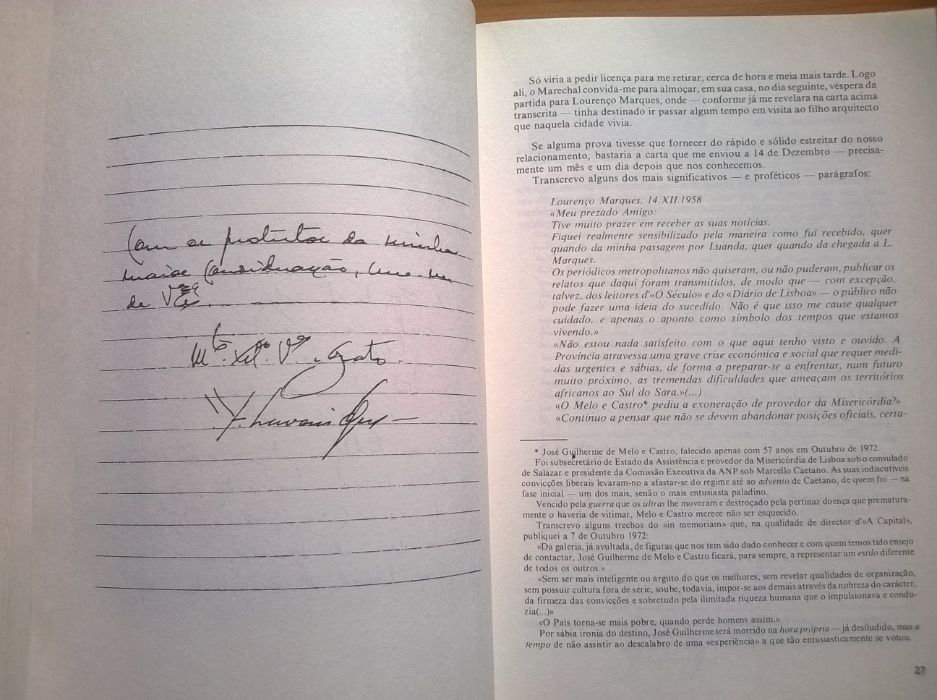 Com os protestos da minha
maior consideração, sou
de V.
Mto. Vº. e Grato
Só viria a pedir licença para me retirar, cerca de hora e meia mais tarde. Logo
ali, o Marechal convida-me para almoçar, em sua casa, no dia seguinte, véspera da
partida para Lourenço Marques, onde — conforme já me revelara na carta acima
transcrita — tinha destinado ir passar algum tempo em visita ao filho arquitecto
que naquela cidade vivia.
Se alguma prova tivesse que fornecer do rápido e sólido estreitar do nosso
relacionamento, bastaria a carta que me enviou a 14 de Dezembro — precisa-
mente um mês e um dia depois que nos conhecemos.
Transcrevo alguns dos mais significativos — e proféticos — parágrafos:
Lourenço Marques, 14.XII.1958
«Meu prezado Amigo:
Tive muito prazer em receber as suas notícias.
Fiquei realmente sensibilizado pela maneira como fui recebido, quer
quando da minha passagem por Luanda, quer quando da chegada a L.
Marques.
Os periódicos metropolitanos não quiseram, ou não puderam, publicar os
relatos que daqui foram transmitidos, de modo que — com excepção,
talvez, dos leitores d'«O Século» e do «Diário de Lisboa» — o público não
pode fazer uma ideia do sucedido. Não é que isso me cause qualquer
cuidado, e apenas o aponto como símbolo dos tempos que estamos
vivendo.»
«Não estou nada satisfeito com o que aqui tenho visto e ouvido. A
Província atravessa uma grave crise económica e social que requer medi-
das urgentes e sábias, de forma a preparar-se a enfrentar, num futuro
muito próximo, as tremendas dificuldades que ameaçam os territórios
africanos ao Sul do Sara.»(...)
«O Melo e Castro* pediu a exoneração de provedor da Misericórdia?»
«Continuo a pensar que não se devem abandonar posições oficiais, certa-
* José Guilherme de Melo e Castro, falecido apenas com 57 anos em Outubro de 1972.
Foi subsecretário de Estado da Assistência e provedor da Misericórdia de Lisboa sob o consulado
de Salazar e presidente da Comissão Executiva da ANP sob Marcello Caetano. As suas indiscutíveis
convicções liberais levaram-no a afastar-se do regime até ao advento de Caetano, de quem foi — na
fase inicial — um dos mais, senão o mais entusiasta paladino.
Vencido pela guerra que os ultras lhe moveram e destroçado pela pertinaz doença que prematura-
mente o haveria de vitimar, Melo e Castro merece não ser esquecido.
Transcrevo alguns trechos do «in memoriam» que, na qualidade de director d'«A Capital»,
publiquei a 7 de Outubro 1972:
«Da galeria, já avultada, de figuras que nos tem sido dado conhecer e com quem temos tido ensejo
de contactar, José Guilherme de Melo e Castro ficará, para sempre, a representar um estilo diferente
de todos os outros.»
«Sem ser mais inteligente ou arguto do que os melhores, sem revelar qualidades de organização,
sem possuir cultura fora de série, soube, todavia, impor-se aos demais através da nobreza do carácter,
da firmeza das convicções e sobretudo pela ilimitada riqueza humana que o impulsionava e condu-
zia(...)»
«O País torna-se mais pobre, quando perde homens assim.»
Por sábia ironia do destino, José Guilherme terá morrido na hora própria — já desiludido, mas a
tempo de não assistir ao descalabro de uma «experiência» a que tão entusiasticamente se votou.
27